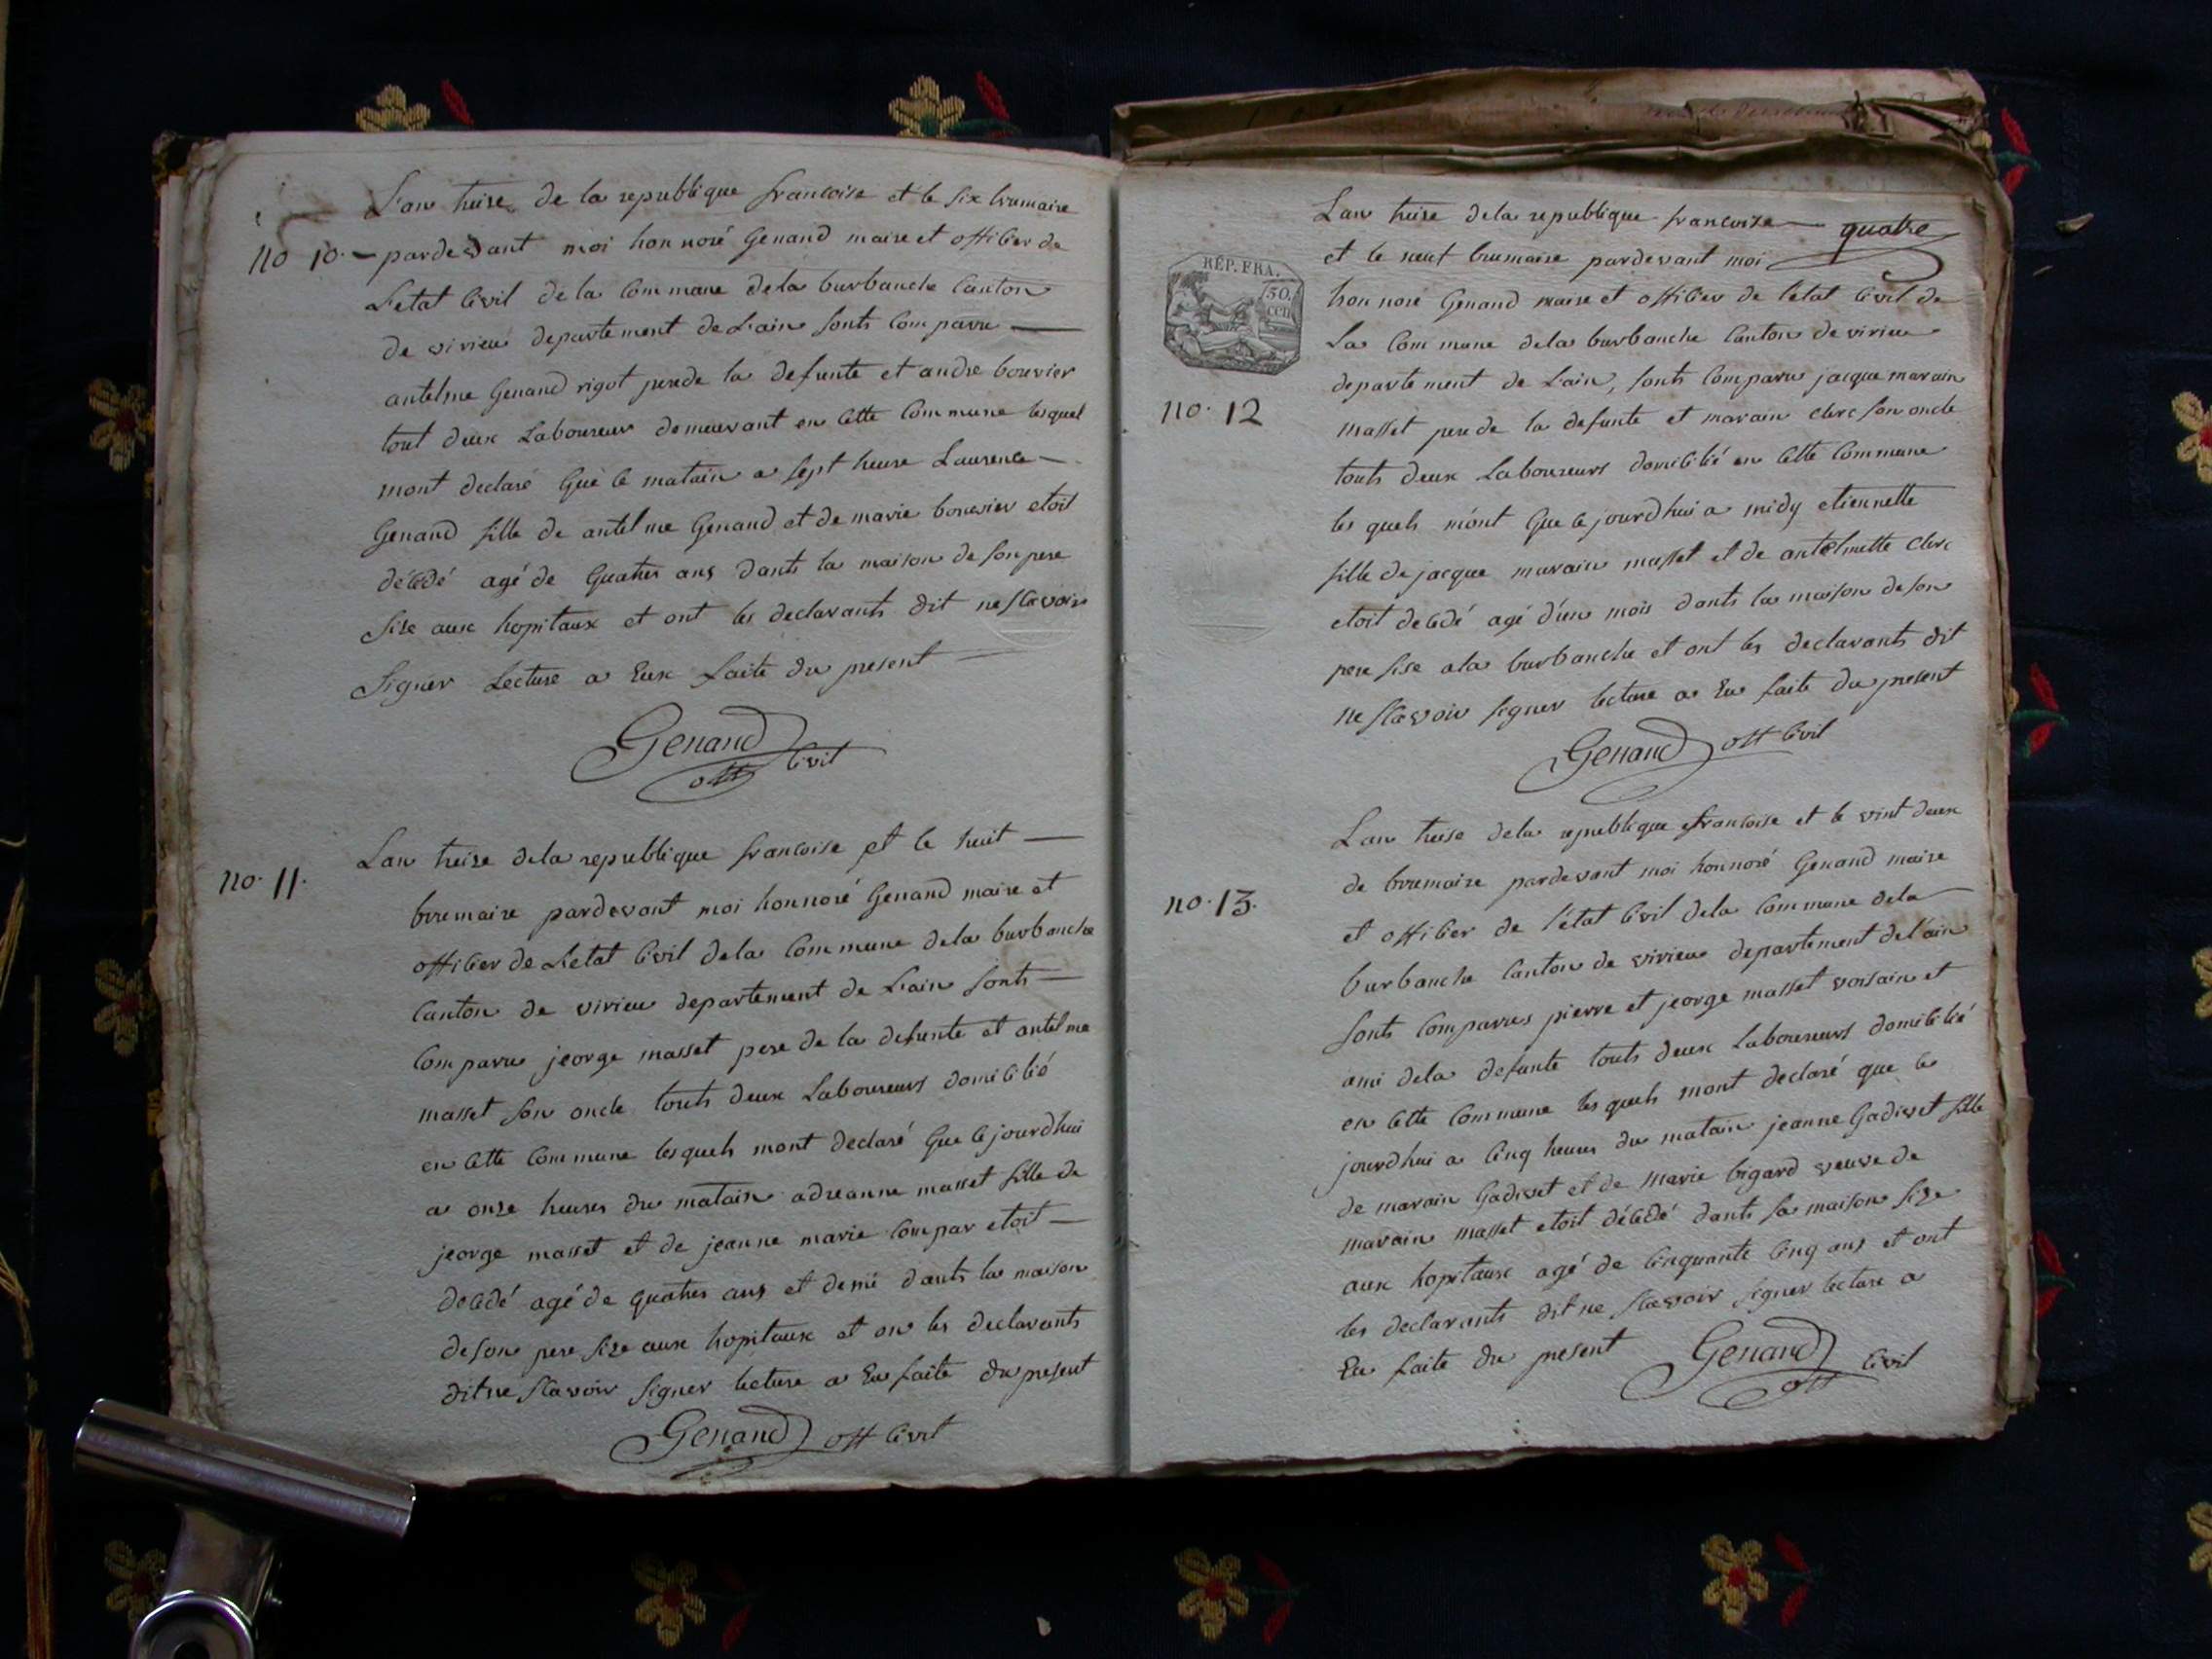 L'an treise de la republique francoise et le six brumaire
no 10. pardevant moi honnoré Genand maire et officier de
L'etat Civil de la Commune dela burbanche Canton
de virieu departement de L'ain sonts Comparu
antelme Genand rigot perede la defunte et andre bouvier
tout deux Laboureur demeurant en Cette Commune lesquel
mont declaré que Ce matain a sept heure Laurence
Genand fille de antelme Genand et de marie bouvier etoit
décédé agé de quatres ans dants la maison de son pere
sise aux hopitaux et ont les declarants dit ne scavoir
signer Lecture a Eux faite du present
Genand
off Civil
no. 11.
Lan treize dela republique francoise et le huit
brumaire pardevant moi honnoré Genand maire et
officier de L'etat Civil dela Commune dela burbanche
Canton de virieu departement de L'ain sonts
Comparu jeorge masset pere de la defunte et antelme
masset son oncle touts deux Laboureurs domicilié
en Cette Commune lesquels mont declaré que Cejourdhui
a onze heures du matain adreanne masset fille de
jeorge masset et de jeanne marie Compar etoit
decedé agé de quatres ans et demi dants la maison
deson pere size aux hopitaux et on les declarants
dit ne scavoir signer lecture a Eu faite du present
Genand off Civil
Lan treise dela republique francoise quatre
et le neuf brumaire pardevant moi
RÉP. FRA.
50.
cen
honnoré Genand maire et officier de l'etat Civil de
La Commune dela burbanche Canton de virieu
departement de L'ain, sonts Comparu jacque marain
no. 12
masset pere de la defunte et marain clerc son oncle
touts deux Laboureurs domicilié en Cette Commune
les quels m'ont que Cejourdhui a midy etiennette
fille de jacque marain masset et de antelmette clerc
etoit decedé agé d'un mois dants la maison deson
pere sise ala burbanche et ont les declarants dit
ne scavoir signer lecture a Eu faite du present
Genand off Civil
Lan treise dela republique francoise et le vint deux
de brumaire pardevant moi honnoré Genand maire
no. 13.
et officier de l'état Civil dela Commune dela
burbanche Canton de virieu departement del'ain
sonts Comparus pierre et jeorge masset voisain et
ami dela defunte touts deux Laboureurs domicilié
en Cette Commune les quels mont declaré que Ce
jourdhui a Cinq heures du matain jeanne Gadivet fille
de marain Gadivet et de marie bigard veuve de
marain masset etoit décédé dants sa maison size
aux hopitaux agé de Cinquante Cinq ans et ont
les declarants dit ne scavoir signer lecture a
Eu faite du present Genand
off Civil